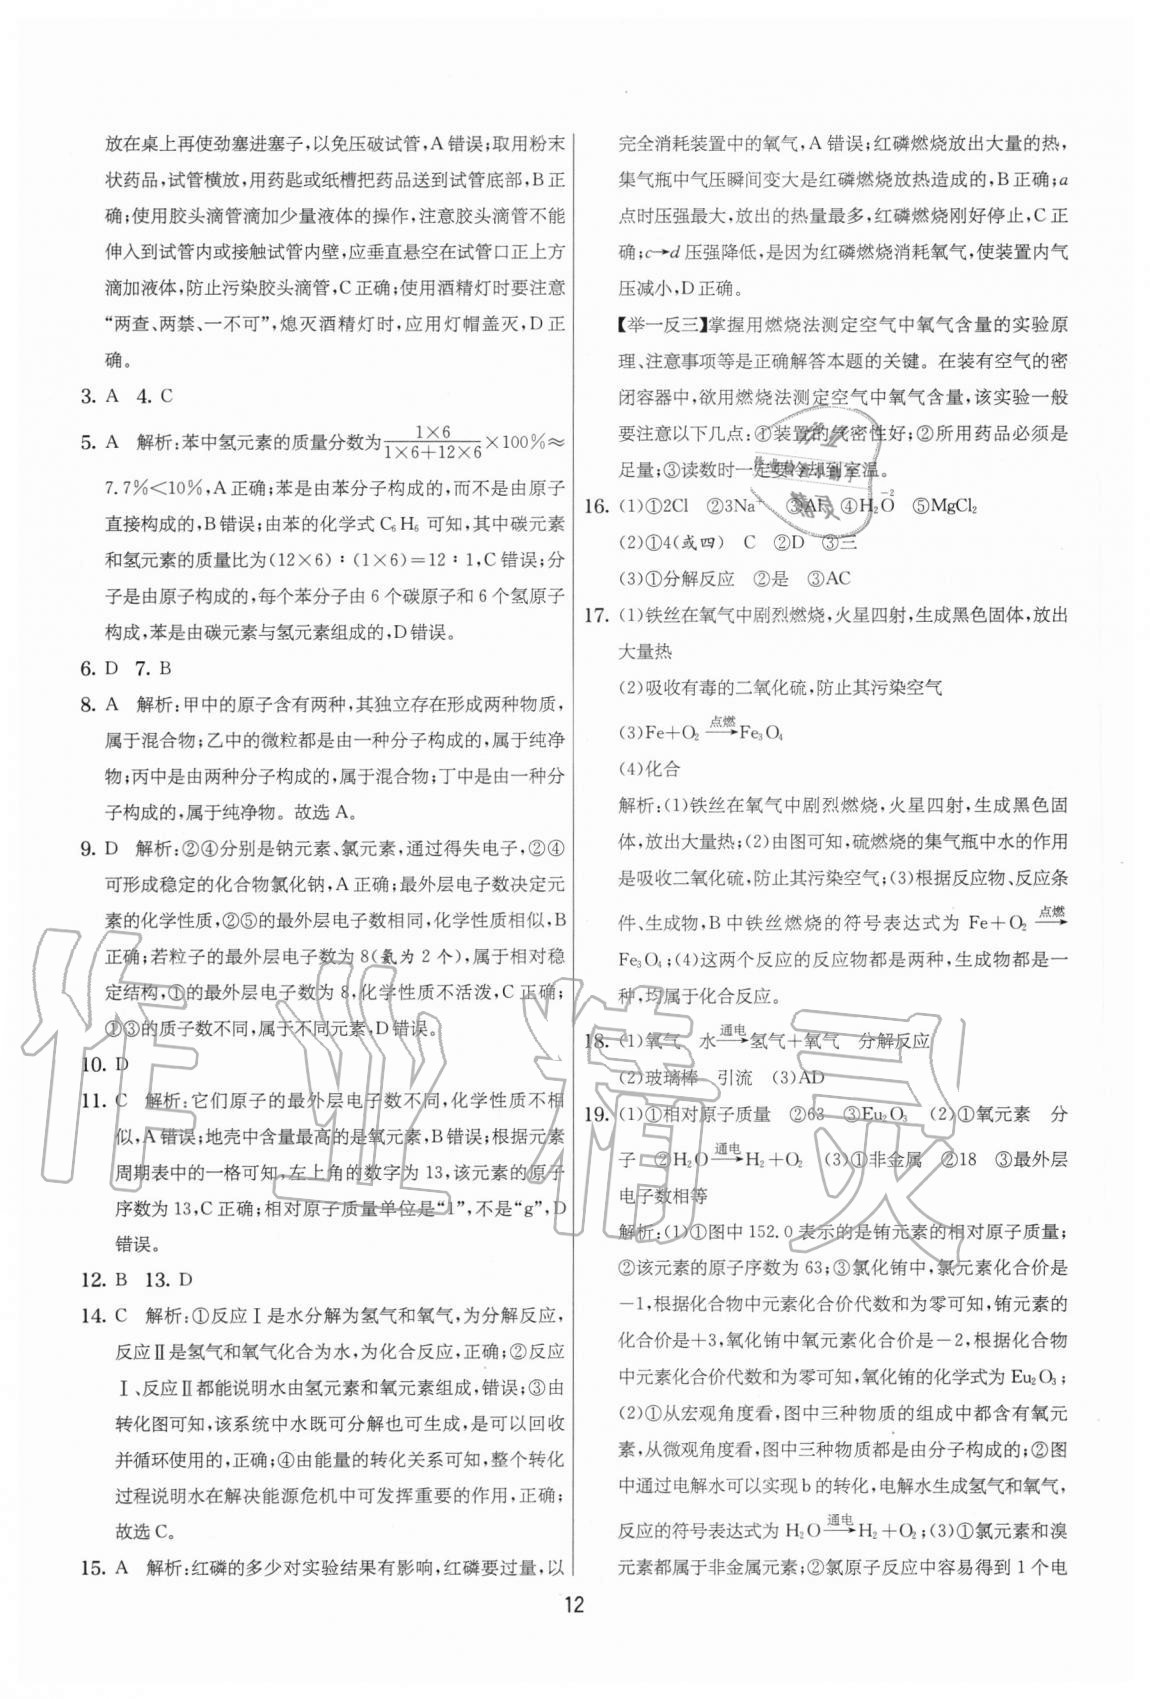 放在桌上再使劲塞进塞子,以免压破试管,A错误;取用粉末
状药品,试管横放,用药匙或纸槽把药品送到试管底部,B正
确;使用胶头滴管滴加少量液体的操作,注意胶头滴管不能
伸入到试管内或接触试管内壁,应垂直悬空在试管口正上方
滴加液体,防止污染胶头滴管,C正确;使用酒精灯时要注意
“两查、两禁、一不可”,熄灭酒精灯时,应用灯帽盖灭,D正
确。
3. A 4. C
5. A 解析:苯中氢元素的质量分数为(1×6)/(1×6+12×6)×100%≈
7.7%<10%,A正确;苯是由苯分子构成的,而不是由原子
直接构成的,B错误;由苯的化学式C₆H₆可知,其中碳元素
和氢元素的质量比为(12×6)∶(1×6)=12∶1,C错误;分
子是由原子构成的,每个苯分子由6个碳原子和6个氢原子
构成,苯是由碳元素与氢元素组成的,D错误。
6. D 7. B
8. A 解析:甲中的原子含有两种,其独立存在形成两种物质,
属于混合物;乙中的微粒都是由一种分子构成的,属于纯净
物;丙中是由两种分子构成的,属于混合物;丁中是由一种分
子构成的,属于纯净物。故选A。
9. D 解析:②④分别是钠元素、氯元素,通过得失电子,②④
可形成稳定的化合物氯化钠,A正确;最外层电子数决定元
素的化学性质,②⑤的最外层电子数相同,化学性质相似,B
正确;若粒子的最外层电子数为8(氦为2个),属于相对稳
定结构,①的最外层电子数为8,化学性质不活泼,C正确;
①③的质子数不同,属于不同元素,D错误。
10. D
11. C 解析:它们原子的最外层电子数不同,化学性质不相
似,A错误;地壳中含量最高的是氧元素,B错误;根据元素
周期表中的一格可知,左上角的数字为13,该元素的原子
序数为13,C正确;相对原子质量单位是“1”,不是“g”,D
错误。
12. B 13. D
14. C 解析:①反应Ⅰ是水分解为氢气和氧气,为分解反应,
反应Ⅱ是氢气和氧气化合为水,为化合反应,正确;②反应
Ⅰ、反应Ⅱ都能说明水由氢元素和氧元素组成,错误;③由
转化图可知,该系统中水既可分解也可生成,是可以回收
并循环使用的,正确;④由能量的转化关系可知,整个转化
过程说明水在解决能源危机中可发挥重要的作用,正确;
故选C。
15. A 解析:红磷的多少对实验结果有影响,红磷要过量,以
完全消耗装置中的氧气,A错误;红磷燃烧放出大量的热,
集气瓶中气压瞬间变大是红磷燃烧放热造成的,B正确;a
点时压强最大,放出的热量最多,红磷燃烧刚好停止,C正
确;c→d压强降低,是因为红磷燃烧消耗氧气,使装置内气
压减小,D正确。
【举一反三】掌握用燃烧法测定空气中氧气含量的实验原
理、注意事项等是正确解答本题的关键。在装有空气的密
闭容器中,欲用燃烧法测定空气中氧气含量,该实验一般
要注意以下几点:①装置的气密性好;②所用药品必须是
足量;③读数时一定要冷却到室温。
16. (1)①2Cl ②3Na⁺ ③Al ④H₂O(−2) ⑤MgCl₂
(2)①4(或四) C ②D ③三
(3)①分解反应 ②是 ③AC
17. (1)铁丝在氧气中剧烈燃烧,火星四射,生成黑色固体,放出
大量热
(2)吸收有毒的二氧化硫,防止其污染空气
(3)Fe+O₂ 点燃→ Fe₃O₄
(4)化合
解析:(1)铁丝在氧气中剧烈燃烧,火星四射,生成黑色固
体,放出大量热;(2)由图可知,硫燃烧的集气瓶中水的作用
是吸收二氧化硫,防止其污染空气;(3)根据反应物、反应条
件、生成物,B中铁丝燃烧的符号表达式为 Fe+O₂ 点燃→
Fe₃O₄;(4)这两个反应的反应物都是两种,生成物都是一
种,均属于化合反应。
18. (1)氧气 水 通电→ 氢气+氧气 分解反应
(2)玻璃棒 引流 (3)AD
19. (1)①相对原子质量 ②63 ③Eu₂O₃ (2)①氧元素 分
子 ②H₂O 通电→ H₂+O₂ (3)①非金属 ②18 ③最外层
电子数相等
解析:(1)①图中152.0表示的是铕元素的相对原子质量;
②该元素的原子序数为63;③氯化铕中,氯元素化合价是
−1,根据化合物中元素化合价代数和为零可知,铕元素的
化合价是+3,氧化铕中氧元素化合价是−2,根据化合物
中元素化合价代数和为零可知,氧化铕的化学式为Eu₂O₃;
(2)①从宏观角度看,图中三种物质的组成中都含有氧元
素,从微观角度看,图中三种物质都是由分子构成的;②图
中通过电解水可以实现b的转化,电解水生成氢气和氧气,
反应的符号表达式为 H₂O 通电→ H₂+O₂;(3)①氯元素和溴
元素都属于非金属元素;②氯原子反应中容易得到1个电
12
作业精灵